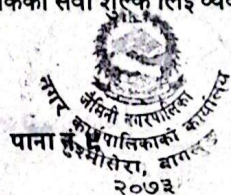 सेवा शुल्क लिई
जैमिनी नगरपालिका
नगर कार्यपालिकाको कार्यालय
पाना नं.
कुश्मीसेरा, बागलुङ
२०७३